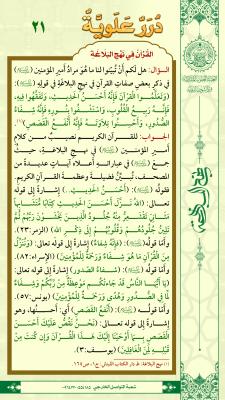 ٢١
دُرَرٌ عَلَوِيَّةٌ
القُرْآنُ فِي نَهْجِ البَلَاغَةِ
السؤال: هل لكم أنْ تُبيِّنوا لنا ما هوَ مرادُ أميرِ المؤمنينَ (﵇)
في ذكرِ بعضِ صفاتِ القرآنِ في نهجِ البلاغةِ في قولهِ (﵇):
(وَتَعَلَّمُوا الْقُرْآنَ فَإِنَّهُ أَحْسَنُ الْحَدِيثِ، وَتَفَقَّهُوا فِيهِ
فَإِنَّهُ رَبِيعُ الْقُلُوبِ، وَاسْتَشْفُوا بِنُورِهِ فَإِنَّهُ شِفَاءُ
الصُّدُورِ، وَأَحْسِنُوا تِلَاوَتَهُ فَإِنَّهُ أَنْفَعُ الْقَصَصِ)(١).
الجواب: للقرآنِ الكريمِ نصيبٌ من كلامِ
أميرِ المؤمنينَ (﵇) في نهجِ البلاغةِ، حيثُ
جمعَ (﵇) في عباراتهِ أعلاه آياتٍ عديدةً من
المصحفِ، تُبيِّنُ فضيلةَ وعظمةَ القرآنِ الكريمِ.
فقولُهُ (﵇): (أَحْسَنُ الْحَدِيثِ..) إشارةٌ إلى قولهِ
تعالى: (اللَّهُ نَزَّلَ أَحْسَنَ الْحَدِيثِ كِتَابًا مُتَشَابِهًا
مَثَانِيَ تَقْشَعِرُّ مِنْهُ جُلُودُ الَّذِينَ يَخْشَوْنَ رَبَّهُمْ ثُمَّ
تَلِينُ جُلُودُهُمْ وَقُلُوبُهُمْ إِلَى ذِكْرِ اللَّهِ) (الزمر:٢٣).
وأمّا قولُه (﵇): (فَإِنَّهُ شِفَاءُ) إشارةٌ إلى قولهِ تعالى: (وَنُنَزِّلُ
مِنَ الْقُرْآنِ مَا هُوَ شِفَاءٌ وَرَحْمَةٌ لِلْمُؤْمِنِينَ) (الإسراء:٨٢).
وأمّا قولُه (﵇): (شِفَاءُ الصُّدُورِ) إشارةٌ إلى قولهِ تعالى:
(يَا أَيُّهَا النَّاسُ قَدْ جَاءَتْكُمْ مَوْعِظَةٌ مِنْ رَبِّكُمْ وَشِفَاءٌ
لِمَا فِي الصُّدُورِ وَهُدًى وَرَحْمَةٌ لِلْمُؤْمِنِينَ) (يونس:٥٧).
وأمّا قولُه (﵇): (أَنْفَعُ الْقَصَصِ) أي: أحسنُها، وهو
إشارةٌ إلى قولهِ تعالى: (نَحْنُ نَقُصُّ عَلَيْكَ أَحْسَنَ
الْقَصَصِ بِمَا أَوْحَيْنَا إِلَيْكَ هَذَا الْقُرْآنَ وَإِنْ كُنْتَ مِنْ
قَبْلِهِ لَمِنَ الْغَافِلِينَ) (يوسف:٣).
(١) نهج البلاغة: ط دار الكتاب اللبناني: ج١، ص١٦٤.